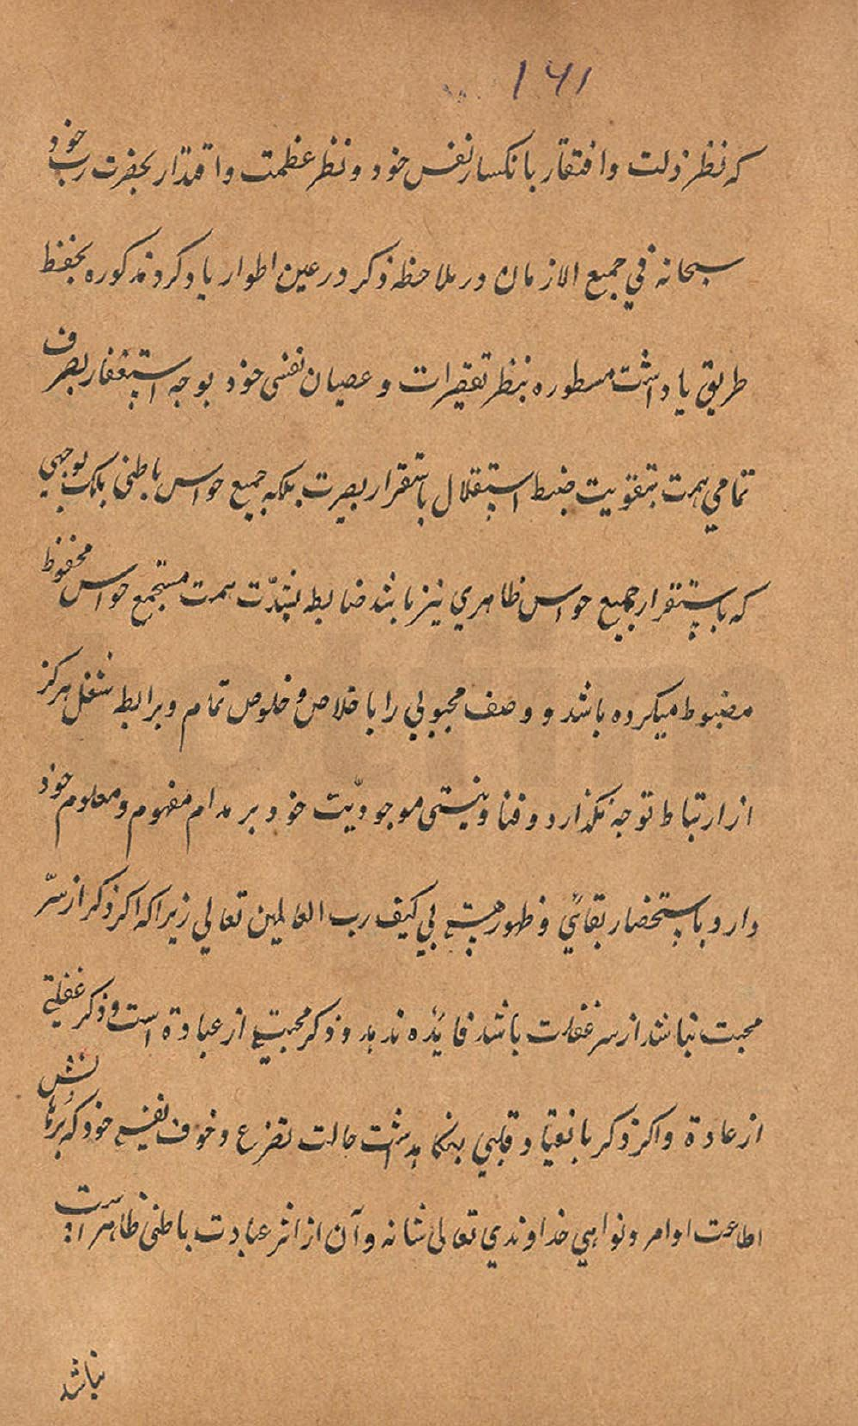 ١٦١
که نظر ذلت وافتقار بانکسار نفس خود ونظر عظمت واقتدار بحضرت رب خود
سبحانه في جميع الازمان در ملاحظه ذکر در عين اطوار ياد کرد مذکوره بحفظ
طريق ياد داشت مسطوره بنظر تقصيرات وعصيان نفسى خود بوجه استغفار بصرف
تمامي همت بتقويت ضبط استقلال باستقرار بصيرت بلکه جميع حواس باطنى بلکه بوجهي
که باستقرار جميع حواس ظاهري نيز مانند ضابطه بشدّت همت مستجمع حواس محفوظ
مضبوط ميکرده باشد ووصف محبوبي را باخلاص وخلوص تمام وبرابطه شغل هرکز
از ارتباط توجه نکذارد وفنا ونيستى موجوديّت خود بر مدام مفهوم ومعلوم خود
دارد باستحضار بقائي وظهور هستئ بي کيف رب العالمين تعالي زيرا که اکر ذکر از سرّ
محبت نباشد از سر غفلت باشد فائده ندهد وذکر محبتي از عبادة است وذکر غفلتي
از عادة واکر ذکر بانقياد قلبي بنکاهداشت حالت تضرع وخوف نفسي خود که برهانش
اطاعت اوامر ونواهي خداوندي تعالى شانه وآن از اثر عبادت باطنى ظاهر است
نباشد